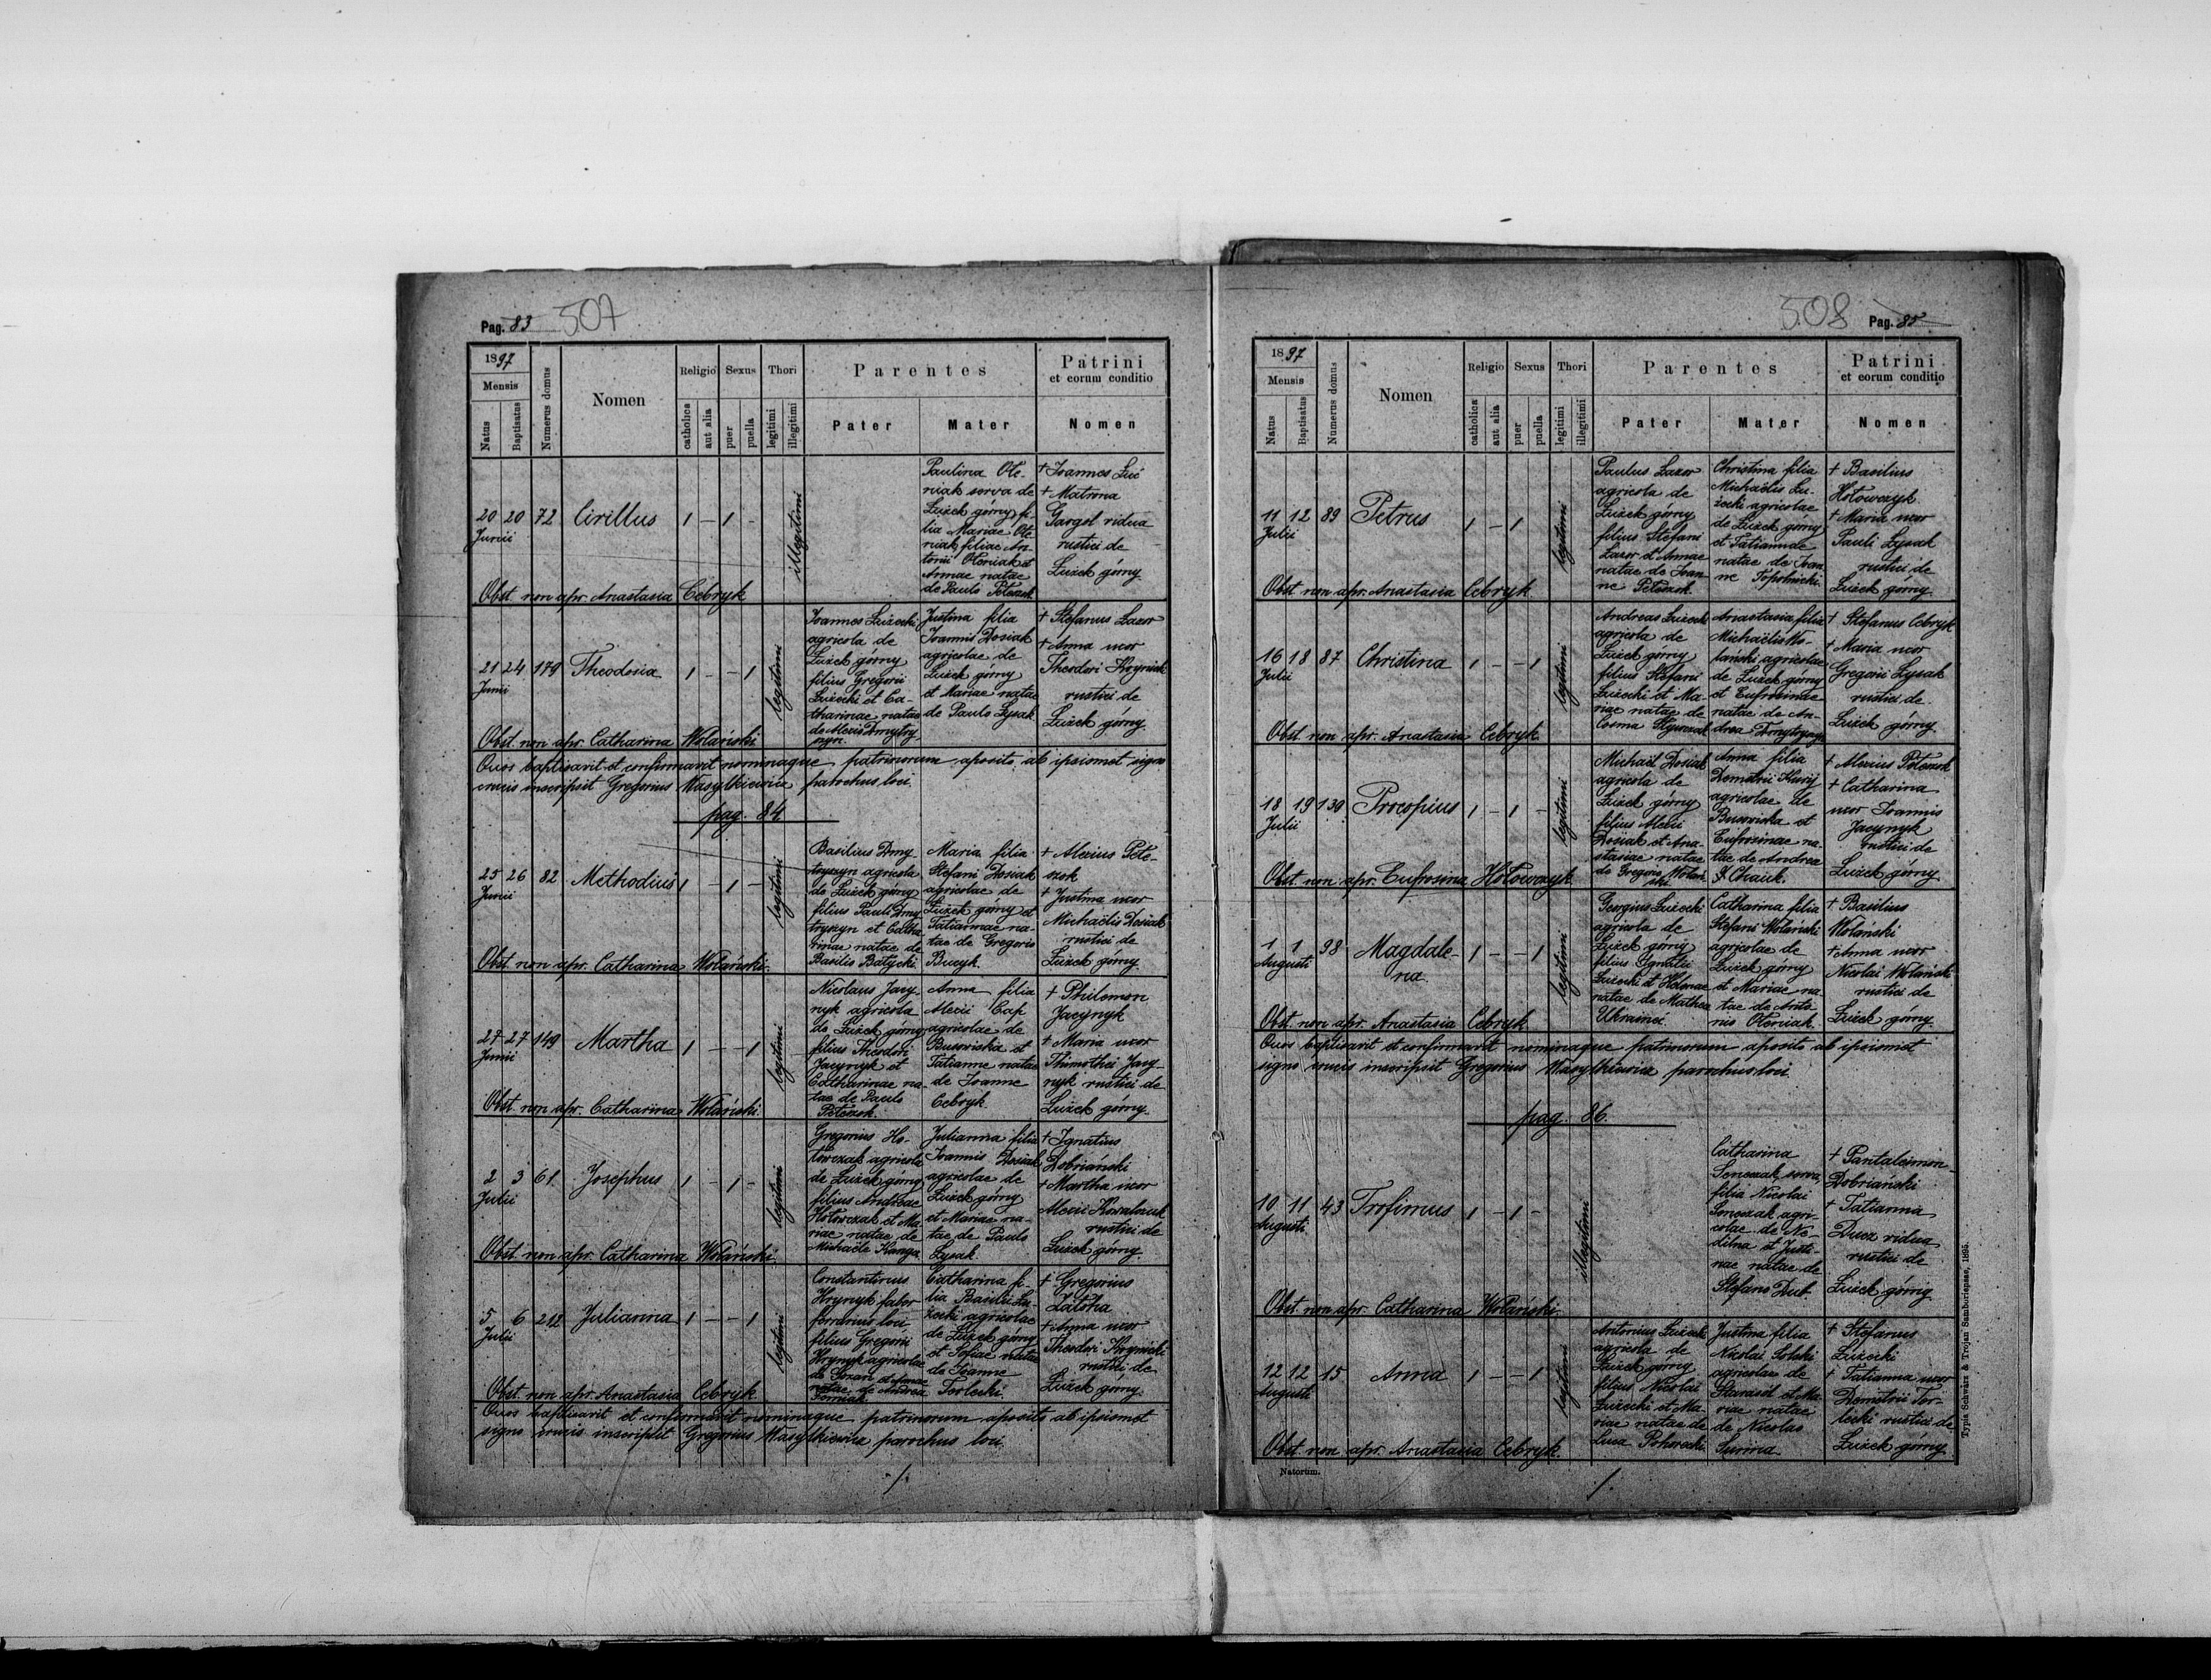 Pag. 83 507
1897
Mensis
Natus
Baptisatus
Numerus domus
Nomen
Religio
catholica
aut alia
Sexus
puer
puella
Thori
legitimi
illegitimi
Parentes
Pater
Mater
Patrini
et eorum conditio
Nomen
20 20 72 Cirillus 1 – 1 -
Junii
illegitimi
Paulina Ole-
niak serva de
Łużek górny fi-
lia Mariae Ole-
niak filiae An-
tonii Oleniak et
Annae natae
de Paulo Petczak
† Joannes Łuć
† Matrona
Gargol vidua
rustici de
Łużek górny
Obst. non apr. Anastasia Cebryk
21 24 179 Theodosia 1 - – 1
Junii
legitimi
Joannes Łużecki
agricola de
Łużek górny
filius Gregorii
Łużecki et Ca-
tharinae natae
de Alexio Dmytry
szyn.
Justina filia
Joannis Dosiak
agricolae de
Łużek górny
et Mariae natae
de Paulo Łysak
† Stefanus Lazor
† Anna uxor
Theodori Hryniak
rustici de
Łużek górny
Obst. non apr. Catharina Wolański
Quos baptisavit et confirmavit nominaque patrinorum aposito ab ipsismet signo
crucis inscripsit Gregorius Wasylkiewicz parochus loci.
pag. 84.
25 26 82 Methodius 1 – 1 –
Junii
legitimi
Basilius Dmy-
tryszyn agricola
de Łużek górny
filius Pauli Dmy
tryszyn et Catha
rinae natae de
Basilio Batycki
Maria filia
Stefani Dosiak
agricolae de
Łużek górny et
Tatiannae na-
tae de Gregorio
Bucyk.
† Alexius Pete-
czok
† Justina uxor
Michaëlis Dosiak
rustici de
Łużek górny
Obst. non apr. Catharina Wolański.
27 27 149 Martha 1 – – 1
Junii
legitimi
Nicolaus Jacy
nyk agricola
de Łużek górny
filius Theodori
Jacynyk et
Catharinae na
tae de Paulo
Peteczok.
Anna filia
Alexii Cap
agricolae de
Busowiska et
Tatianne natae
de Joanne
Cebryk.
† Philemon
Jacynyk
† Maria uxor
Thimothei Jacy-
nyk rustici de
Łużek górny.
Obst. non apr. Catharina Wolański.
2 3 61. Josephus 1 – 1 -
Julii
legitimi
Gregorius Ho-
łowczak agricola
de Łużek górny
filius Andreae
Hołowczak et Ma
riae natae de
Michaële Kanya
Julianna filia
Joannis Dosiak
agricolae de
Łużek górny
et Mariae na-
tae de Paulo
Łysak.
† Ignatius
Dobriański
† Martha uxor
Alexii Kowalczuk
rustici de
Łużek górny.
Obst. non apr. Catharina Wolański.
5 6 212 Julianna 1 – – 1
Julii
legitimi
Constantinus
Hrynyk faber
ferrarius loci
filius Gregorii
Hrynyk agricolae
natae de Andrea
Catharina fi-
lia Basilii Łu-
żecki agricolae
de Łużek górny
et Sofiae natae
de Joanne
Torlecki.
† Gregorius
Zatoka
† Anna uxor
Theodori Krynicki
rustici de
Łużek górny.
Obst. non apr. Anastasia Cebryk.
Quos baptisavit et confirmavit nominaque patrinorum aposito ab ipsismet
signo crucis inscripsit Gregorius Wasylkiewicz parochus loci.
508 Pag. 85
1897
Mensis
Natus
Baptisatus
Numerus domus
Nomen
Religio
catholica
aut alia
Sexus
puer
puella
Thori
legitimi
illegitimi
Parentes
Pater
Mater
Patrini
et eorum conditio
Nomen
11 12 89 Petrus 1 – 1
Julii
legitimi
Paulus Lazor
agricola de
Łużek górny
filius Stefani
Lazor et Annae
natae de Joan
ne Peteczok.
Christina filia
Michaëlis Łu-
żecki agricolae
de Łużek górny
et Tatiannae
natae de Joan
ne Topolnicki
† Basilius
Hołowczyk
† Maria uxor
Pauli Łysak
rustici de
Łużek górny.
Obst. non apr. Anastasia Cebryk
16 18 87 Christina 1 – – 1
Julii
legitimi
Andreas Łużecki
agricola de
Łużek górny
filius Stefani
Łużecki et Ma-
riae natae de
Cosma
Anastasia filia
Michaëlis Wo-
lański agricolae
de Łużek górny
et Eufrosinae
natae de An-
drea Dmytryszyn
† Stefanus Cebryk
† Maria uxor
Gregorii Łysak
rustici de
Łużek górny
Obst. non apr. Anastasia Cebryk.
18 19 130 Procopius 1 – 1 –
Julii
legitimi
Michaël Dosiak
agricola de
Łużek górny
filius Alexii
Dosiak et Ana-
stasiae natae
de Gregorio Wolań
ski
Anna filia
Demetrii Kurij
agricolae de
Busowiska et
Eufrosinae na-
tae de Andrea
Chaiuk.
† Alexius Peteczok
† Catharina
uxor Joannis
Jacynyk
rustici de
Łużek górny.
Obst. non apr. Eufrosina Hołowczyk
1 1 98 Magdale- 1 – – 1
Augusti na.
legitimi
Georgius Łużecki
agricola de
Łużek górny
filius Ignatii
Łużecki et Helenae
natae de Matheo
Ukrainci.
Catharina filia
Stefani Wolański
agricolae de
Łużek górny
et Mariae na-
tae de Anto
nio Oleniak.
† Basilius
Wolański
† Anna uxor
Nicolai Wolański
rustici de
Łużek górny.
Obst. non apr. Anastasia Cebryk
Quos baptisavit et confirmavit nominaque patrinorum aposito ab ipsismet
signo crucis inscripsit Gregorius Wasylkiewicz parochus loci.
pag. 86.
10 11 43 Trofimus 1 – 1 -
Augusti
illegitimi
Catharina
Senczak serva,
filia Nicolai
Senczak agri-
colae de Ne-
dilna et Justi-
nae natae de
Stefano Dub
† Pantaleimon
Dobriański
† Tatianna
Ducz vidua
rustici de
Łużek górny.
Obst. non apr. Catharina Wolański.
12 12 15 Anna 1 – – 1
Augusti
legitimi
Antonius Łużecki
agricola de
Łużek górny
filius Nicolai
Łużecki et Ma-
riae natae de
Luca Pohorecki
Justina filia
Nicolai Solski
agricolae de
Starasól et Ma-
riae natae
de Nicolao
Surma.
† Stefanus
Łużecki
† Tatianna uxor
Demetrii Tor-
lecki rustici de
Łużek górny.
Obst. non apr. Anastasia Cebryk.
Natortim.
Typis Schwarz & Trojan Samboriepase, 1895.